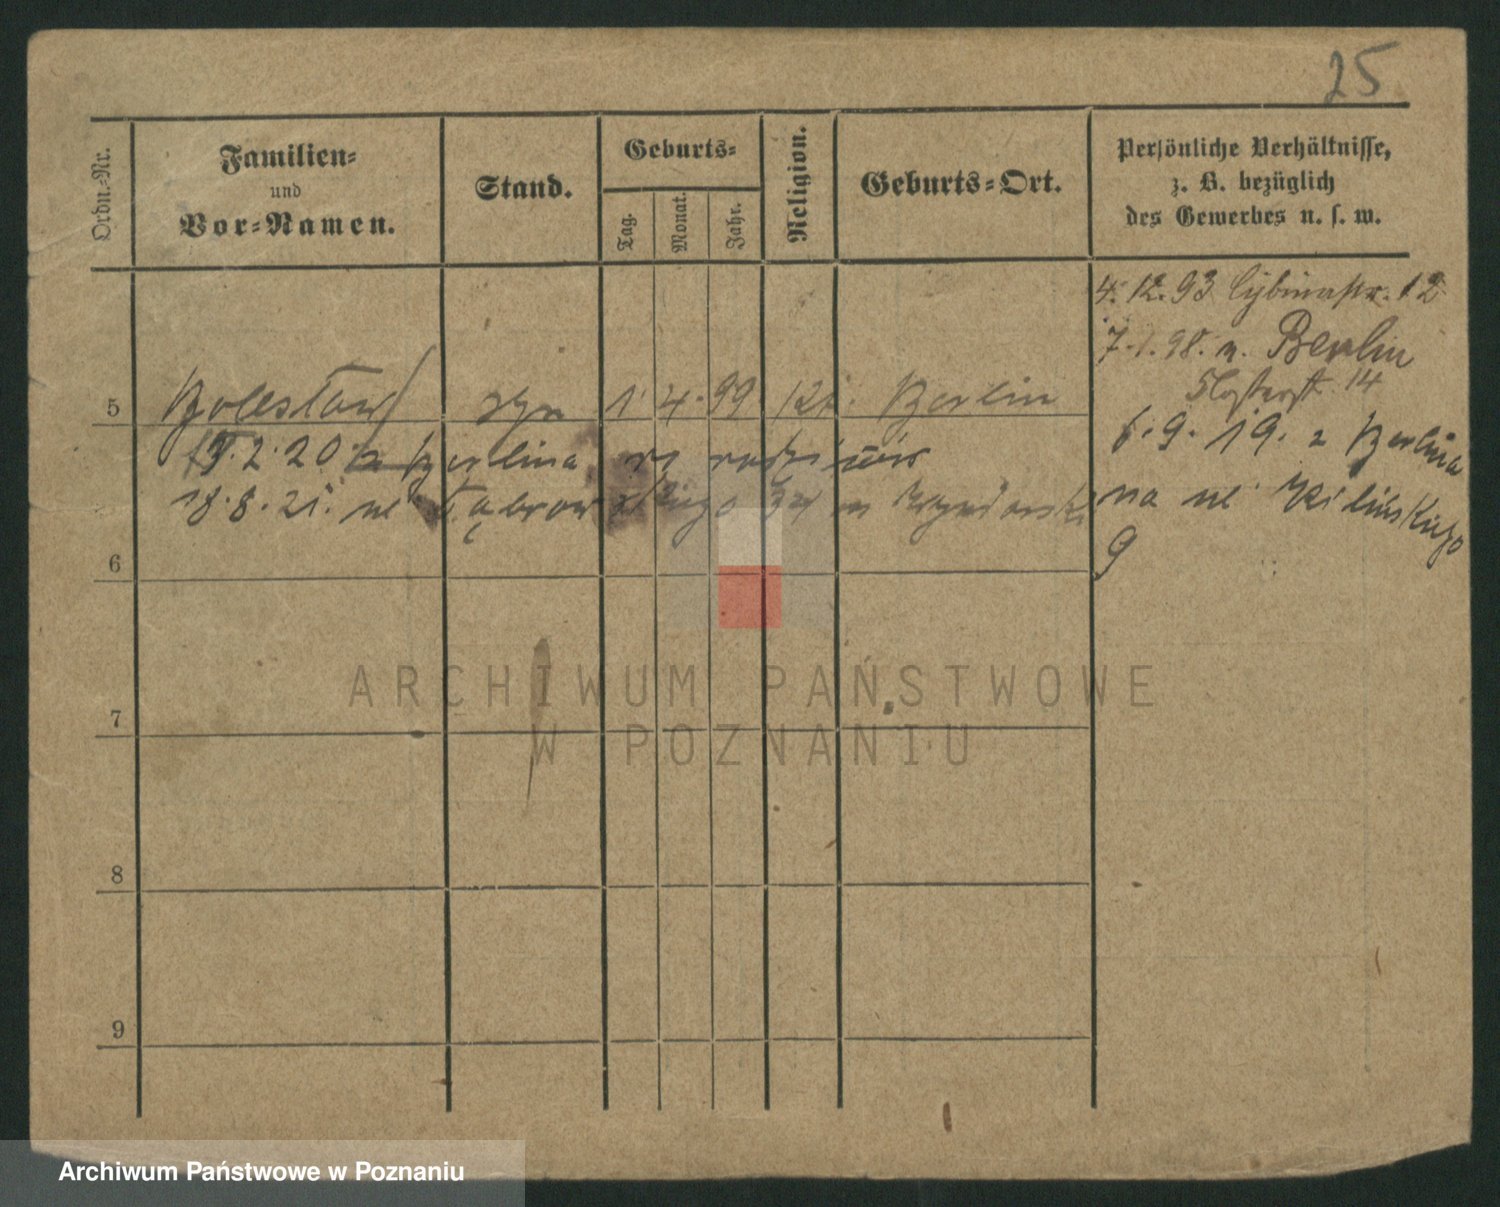 25
Ordn.-Nr.
Familien-
und
Vor-Namen.
Stand.
Geburts-
Tag.
Monat.
Jahr.
Religion.
Geburts-Ort.
Persönliche Verhältnisse,
z. B. bezüglich
des Gewerbes u. s. w.
4. 12. 93 Cybinastr. 12
7. 1. 98. n. Berlin
14
5 Bolesław syn 1 4. 99 kt. Berlin
6. 9. 19. z Berlina
2. 20 z Berlina
na ul Kilińskiego
9
18. 8. 21. ul Dąbrowskiego 34
6
7
8
9
ARCHIWUM PAŃSTWOWE
W POZNANIU
Archiwum Państwowe w Poznaniu